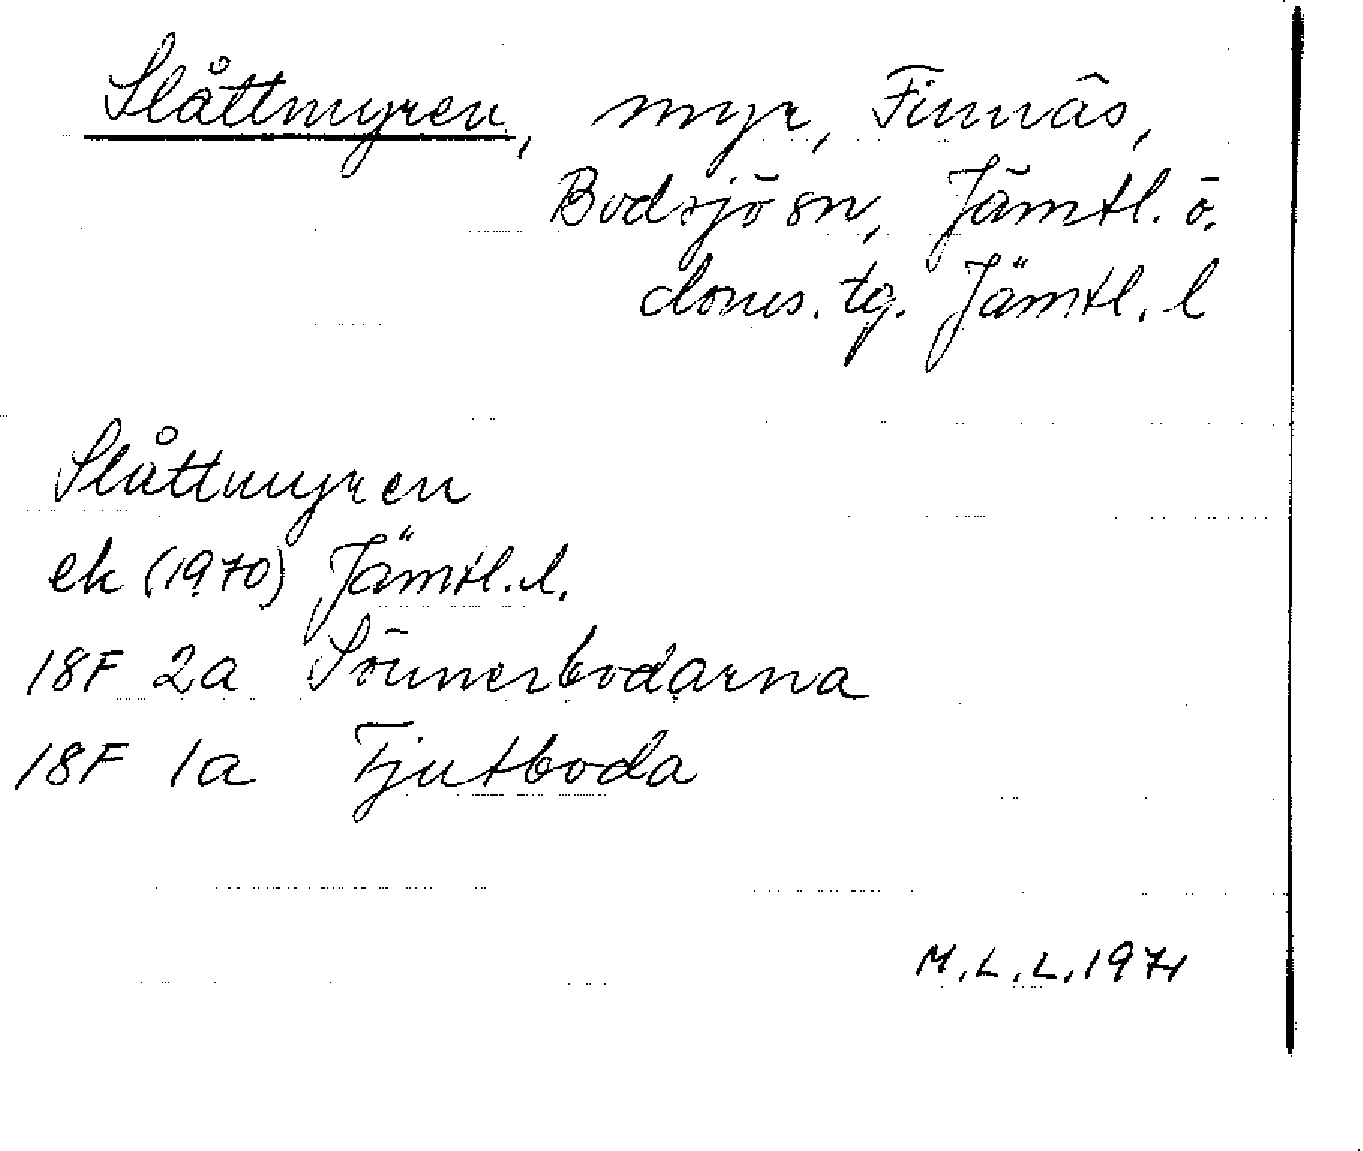 Slåttmyren, myr, Finnäs,
Bodsjö sn, Jämtl. ö.
doms. tg. Jämtl. l
Slåttmyren
ek (1970) Jämtl. l.
18F 2a Sörmerbodarna
18F 1a Fjutboda
M.L.L. 1971